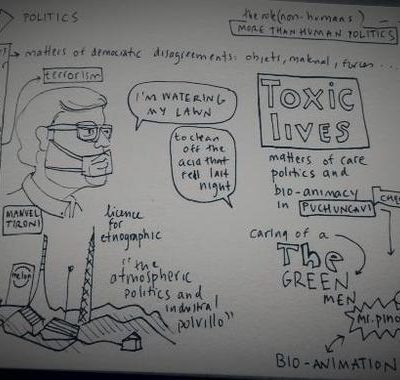 POLITICS
the role (non-humans)
MORE THAN HUMAN POLITICS
matters of democratic disagreements: objets, material, forces ...
terrorism
I'M WATERING
MY LAWN
to clean
off the
acid that
fell last
night
Toxic
lives
matters of care
politics and
bio-animacy
in PUCHUNCAVI
MANUEL
TIRONI
licence
for
etnographic
"the
atmospheric
politics and
industrial
polvillo"
melon
caring of a
The
GREEN
MEN
Mr. pino
BIO-ANIMATION